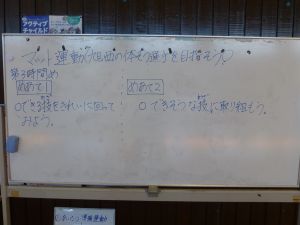 アクティブ
チャイルド
マット運動(旭西の体そう選手を目指そう。)
第3時間め
めあて1
めあて2
○できる技をきれいに回って
みよう。
○できそうな技に取り組もう。
準備運動